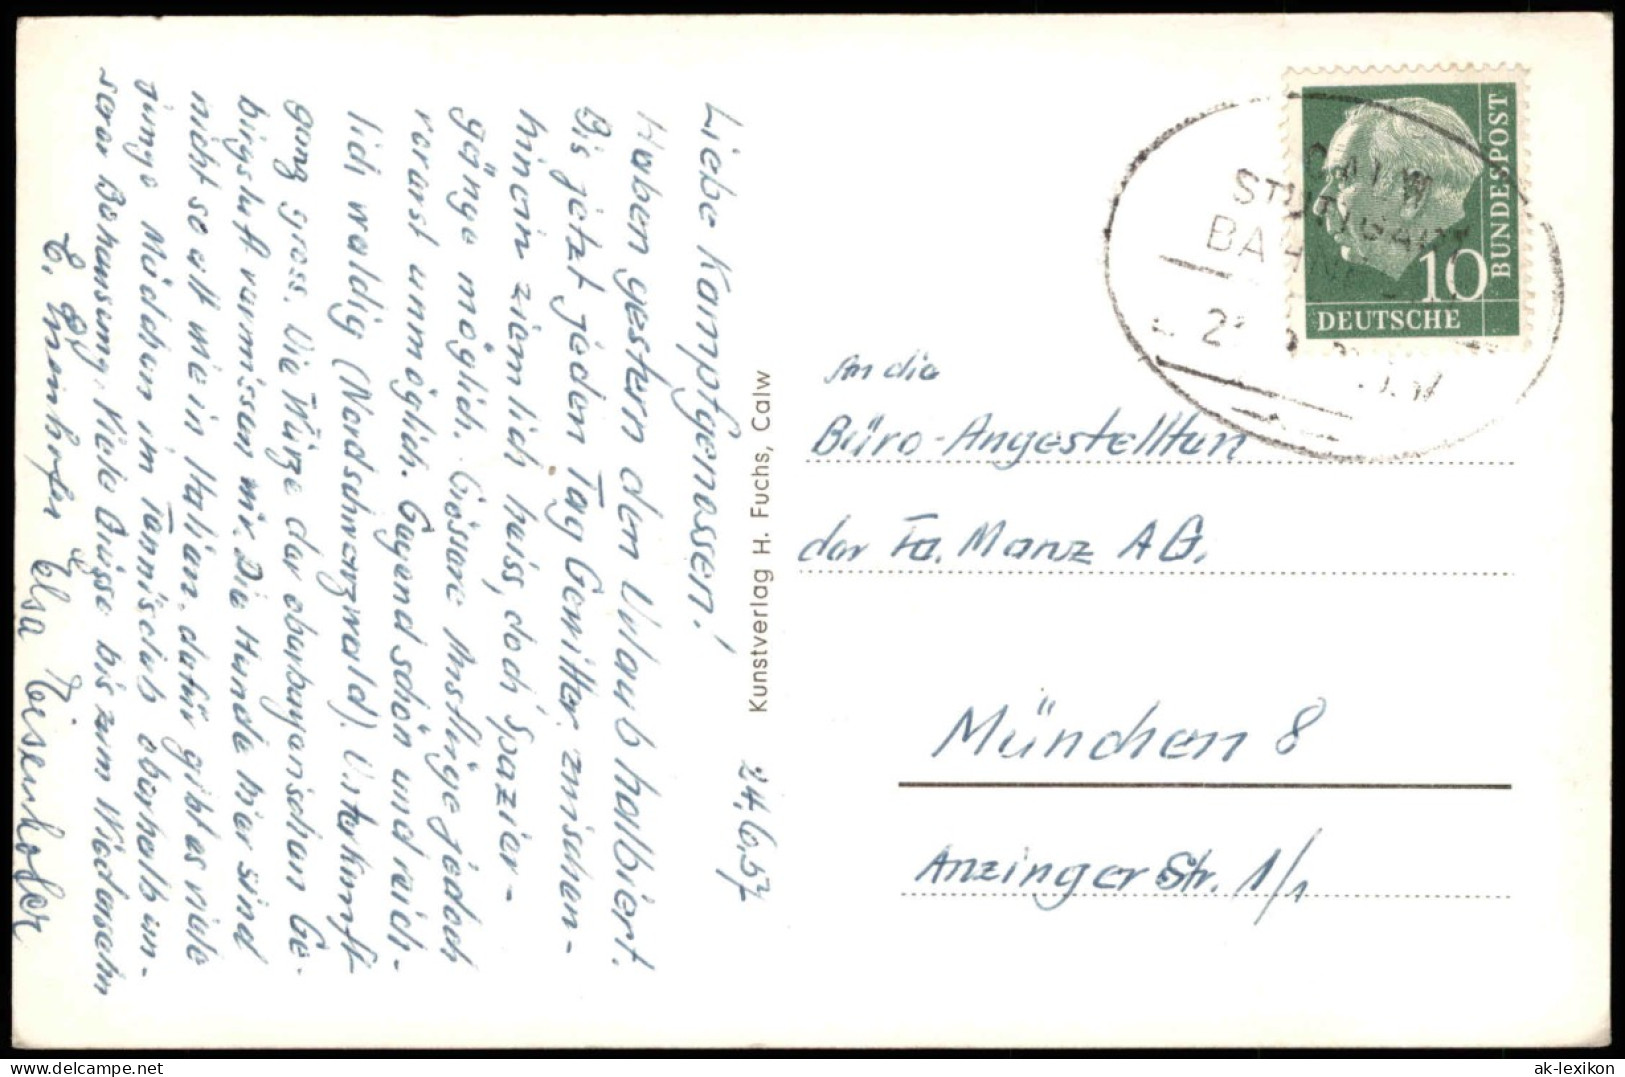 24.6.57
Liebe Kampfgenossen!
Haben gestern den Urlaub halbiert.
Bis jetzt jeden Tag Gewitter, zwischen-
hinein ziemlich heiss, doch Spazier-
gänge möglich. Grössere Ausflüge jedoch
vorerst unmöglich. Gegend schön und reich-
lich waldig (Nordschwarzwald). Unterkunft
ganz gross. Die Würze der oberbayerischen Ge-
birgsluft vermissen wir. Die Hunde hier sind
nicht so alt wie in Italien, dafür gibt es viele
junge Mädchen im Tennisclub oberhalb un-
serer Behausung. Viele Grüsse bis zum Wiedersehn
E. Meinhofer Elsa Reisenhofer
Kunstverlag H. Fuchs, Calw
An die
Büro-Angestellten
der Fa. Manz AG.
München 8
Anzinger Str. 1/1
DEUTSCHE
BUNDESPOST
10
CALW
STUTTGART
BAHNPOST
ak-lexikon